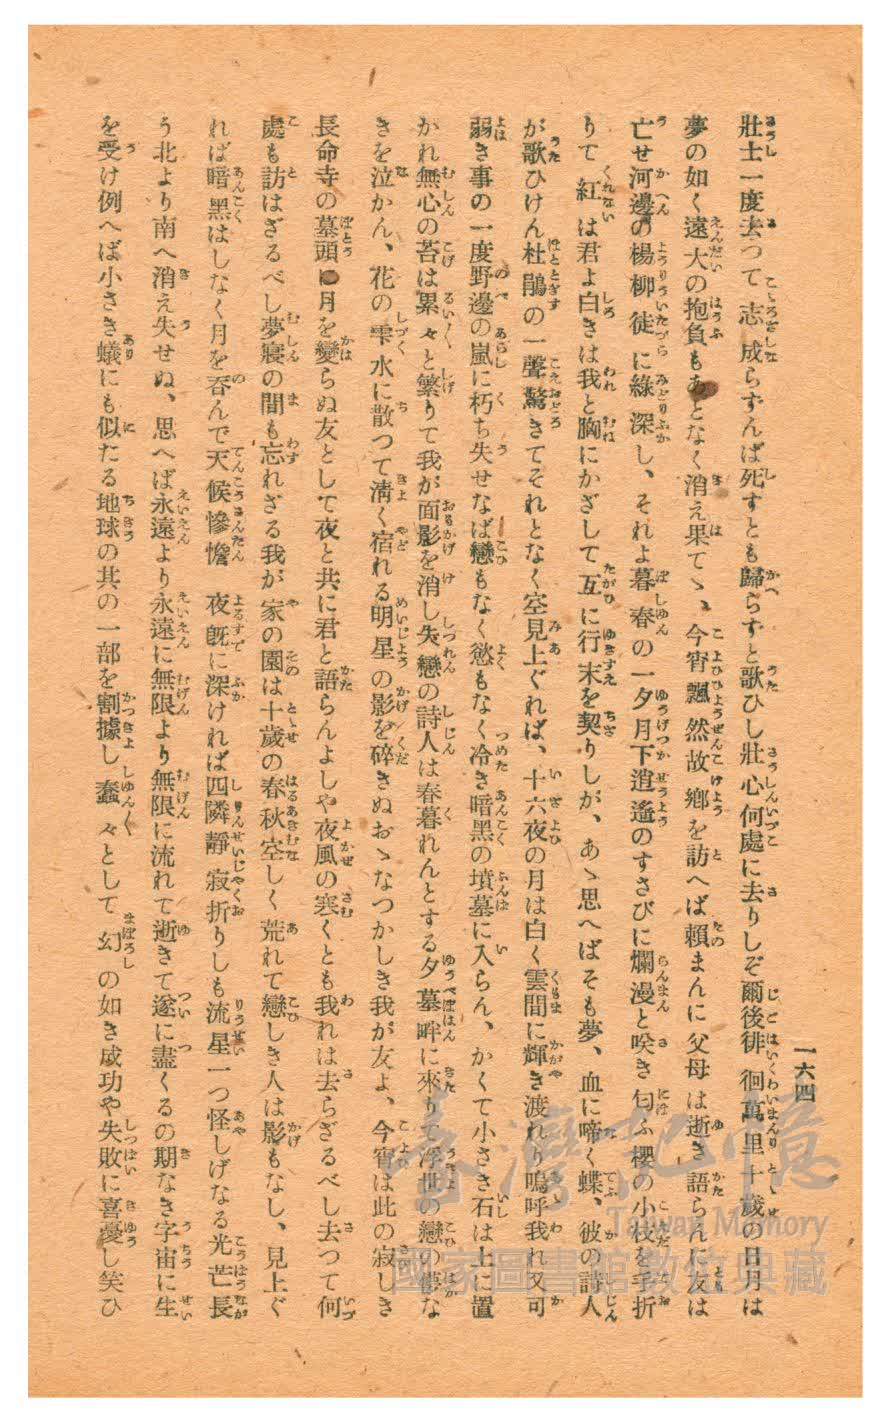 一六四
壯士一度去つて志成らずんば死すとも歸らずと歌ひし壯心何處に去りしぞ爾後徘徊萬里十歲の日月は
夢の如く遠大の抱負もあとなく消え果てゝ、今宵飄然故鄕を訪へば賴まんに父母は逝き語らん友は
亡せ河邊の楊柳徒に綠深し、それよ暮春の一夕月下逍遙のすさびに爛漫と咲き匂ふ櫻の小枝を手折
りて紅は君よ白きは我と胸にかざして互に行末を契りしが、あゝ思へばそも夢、血に啼く蝶、彼の詩人
が歌ひけん杜鵑の一聲驚きてそれとなく空見上ぐれば、十六夜の月は白く雲間に輝き渡れり嗚呼我れ又可
弱き事の一度野邊の嵐に朽ち失せなば戀もなく慾もなく冷き暗黑の墳墓に入らん、かくて小さき石は土に置
かれ無心の苔は累々と繁りて我が面影を消し失戀の詩人は春暮れんとする夕墓畔に來りて浮世の戀の儚な
きを泣かん、花の雫水に散つて淸く宿れる明星の影を碎きぬおゝなつかしき我が友よ、今宵は此の寂しき
長命寺の墓頭に月を變らぬ友として夜と共に君と語らんよしや夜風の寒くとも我れは去らざるべし去つて何
處も訪はざるべし夢寢の間も忘れざる我が家の園は十歲の春秋空しく荒れて戀しき人は影もなし、見上ぐ
れば暗黑はしなく月を呑んで天候慘憺　夜旣に深ければ四隣靜寂折りしも流星一つ怪しげなる光芒長
う北より南へ消え失せぬ、思へば永遠より永遠に無限より無限に流れて逝きて遂に盡くるの期なき宇宙に生
を受け例へば小さき蟻にも似たる地球の其の一部を割據し蠢々として幻の如き成功や失敗に喜憂し笑ひ
臺灣記憶
Taiwan Memory
國家圖書館數位典藏